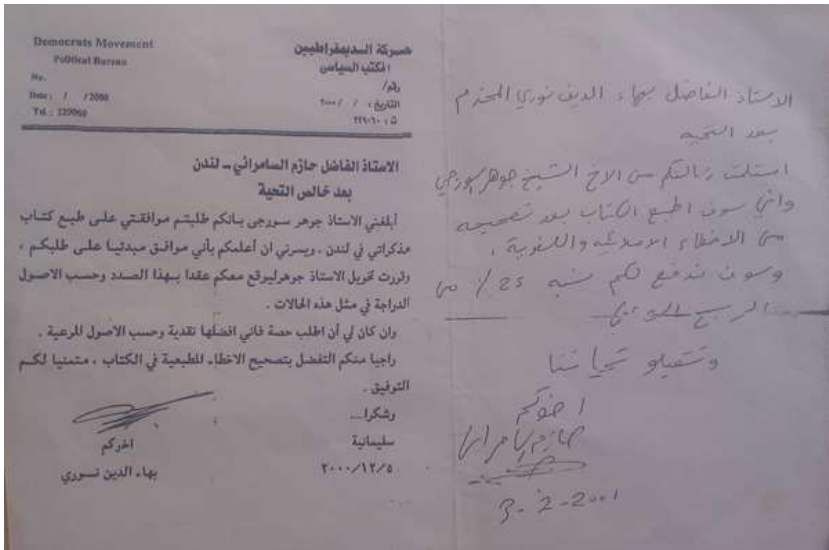 Democrats Movement
Political Bureau
No.
Date: / / 2000
Tel.: 229060
حركة الديمقراطيين
المكتب السياسي
رقم/
التاريخ: / / ٢٠٠٠
ت: ٢٢٩٠٦٠
الاستاذ الفاضل حازم السامرائي ــ لندن
بعد خالص التحية
أبلغني الاستاذ جوهر سورجي بانكم طلبتم موافقتي على طبع كتاب
مذكراتي في لندن. ويسرني ان أعلمكم بأني موافق مبدئيا على طلبكم،
وقررت تخويل الاستاذ جوهر ليوقع معكم عقدا بهذا الصدد وحسب الاصول
الدراجة في مثل هذه الحالات.
وان كان لي أن اطلب حصة فاني افضلها نقدية وحسب الاصول المرعية.
راجيا منكم التفضل بتصحيح الاخطاء المطبعية في الكتاب، متمنيا لكم
التوفيق.
وشكرا...
سليمانية
٢٠٠٠/١٢/٥
اخوكم
بهاء الدين نوري
الاستاذ الفاضل بهاء الدين نوري المحترم
بعد التحية
استلمت رسالتكم من الاخ الشيخ جوهر سورجي
واني سوف اطبع الكتاب بعد تصحيحه
من الاخطاء الاملائية واللغوية.
وسوف ندفع لكم نسبة 25٪ من
الربح
وتقبلو تحياتنا
اخوكم
حازم السامرائي
3-2-2001